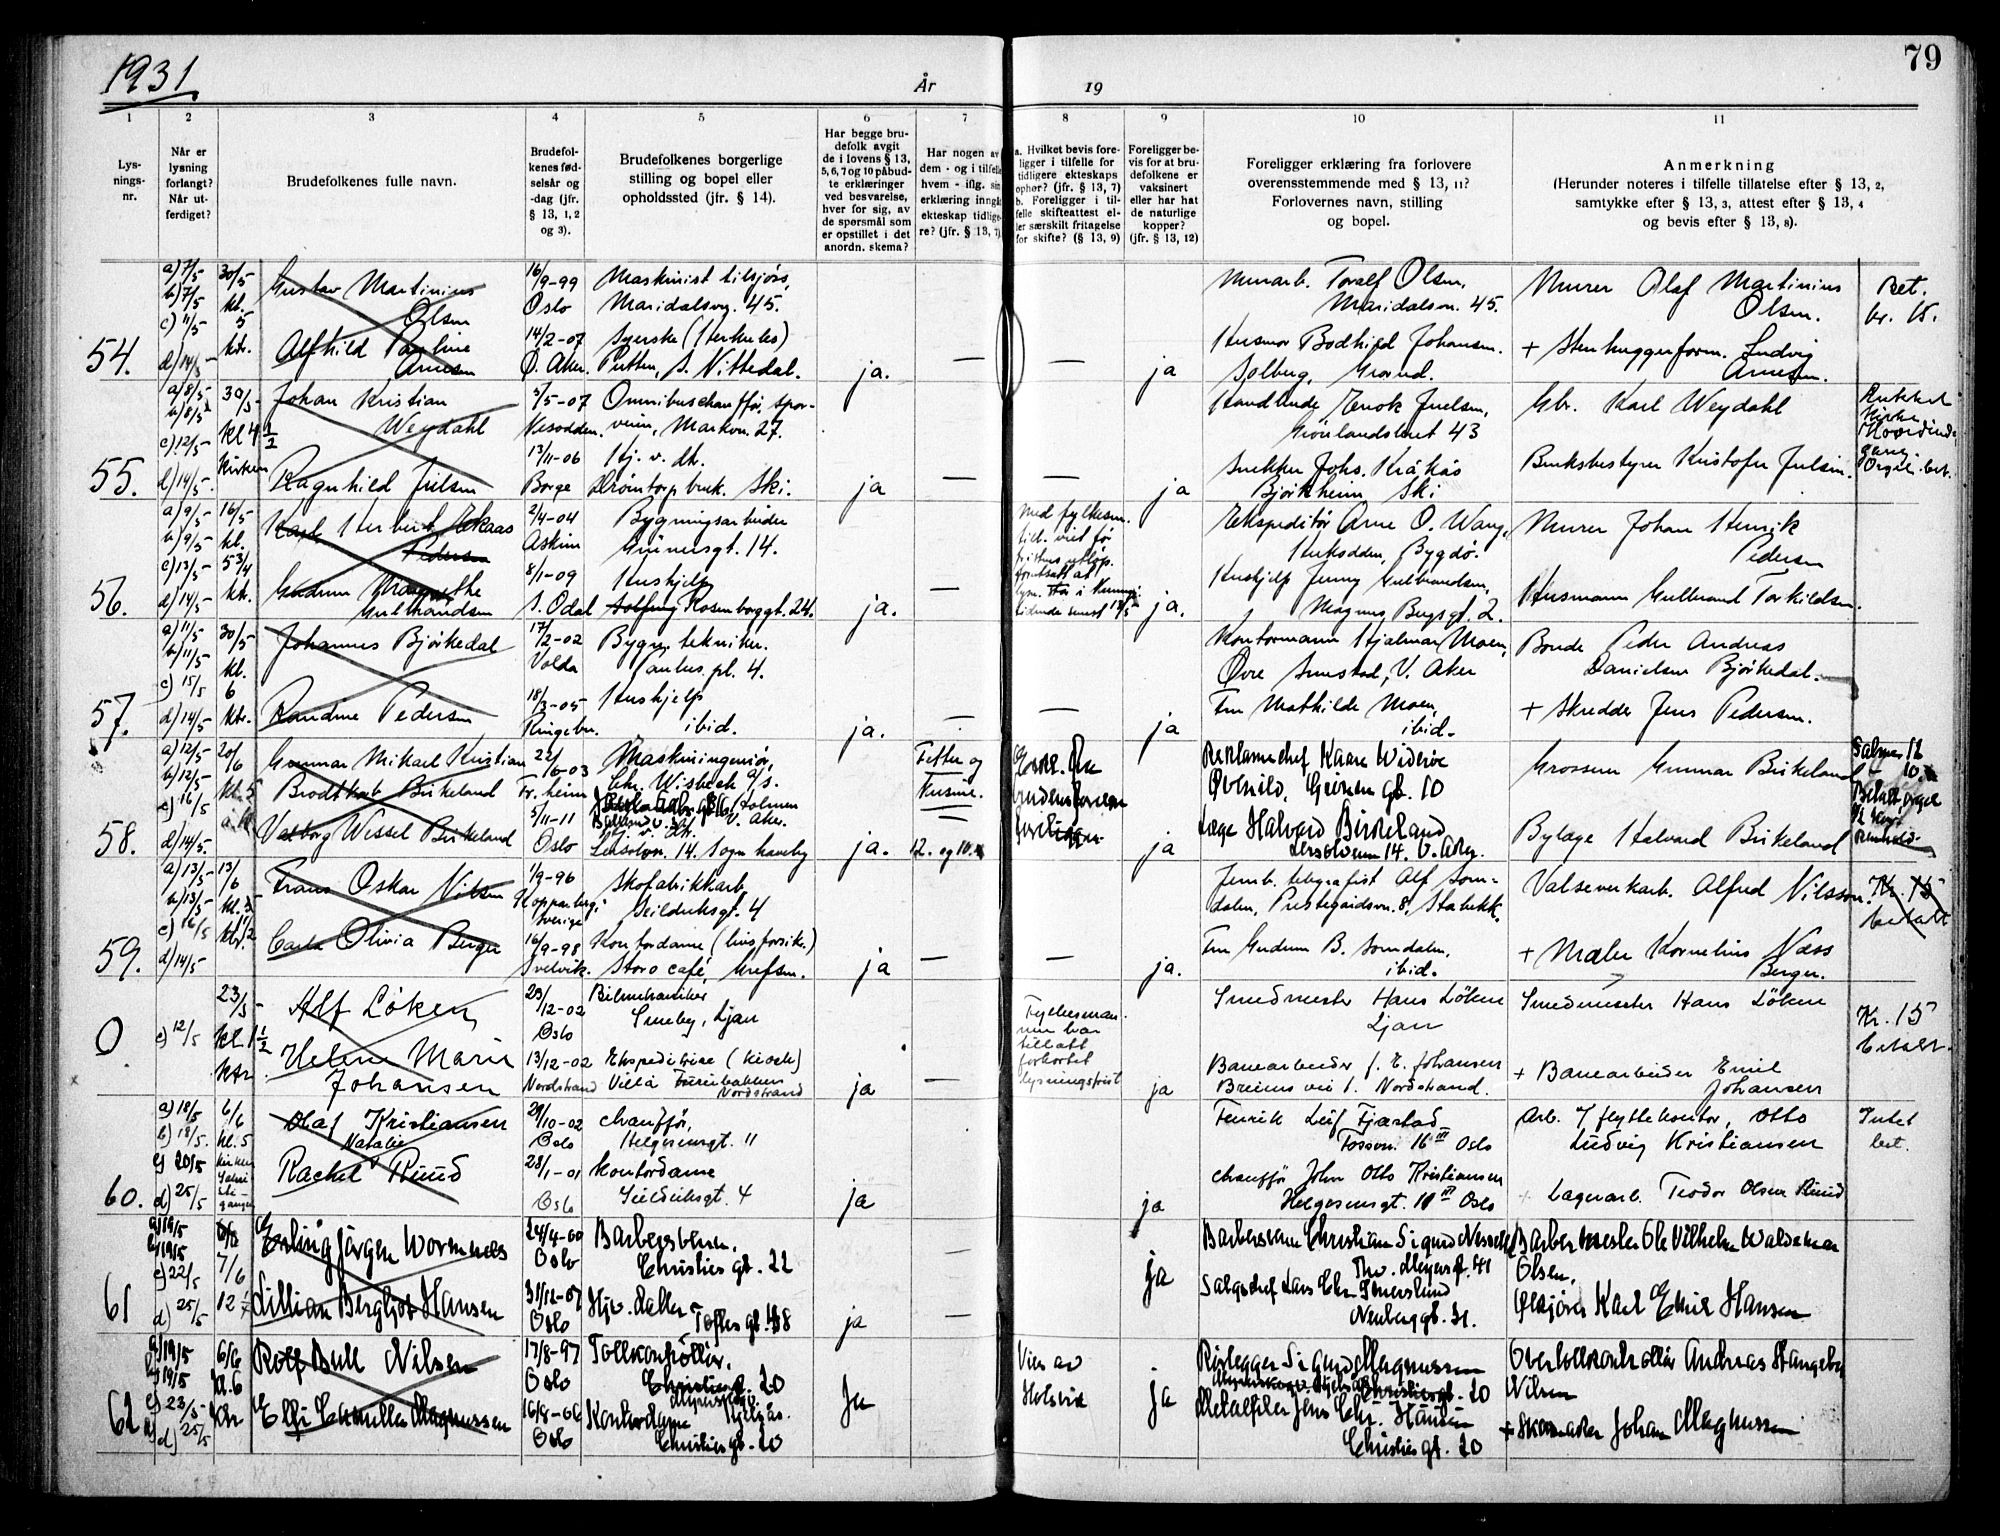 1931
År
19
79
1
2
3
4
5
6
7
8
9
10
11
Lys-
nings-
nr.
Når er
lysning
forlangt?
Når ut-
ferdiget?
Brudefolkenes fulle navn.
Brudefol-
kenes fød-
selsår og
-dag (jfr.
§ 13, 1, 2
og 3).
Brudefolkenes borgerlige
stilling og bopel eller
opholdssted (jfr. § 14).
Har begge bru-
defolk avgit
de i lovens § 13,
5, 6, 7 og 10 påbud-
te erklæringer
ved besvarelse,
hver for sig, av
de spørsmål som
er opstillet i det
anordn. skema?
Har nogen av
dem - og i tilfelle
hvem - iflg. sin
erklæring inngått
ekteskap tidlige-
re? (jfr. § 13, 7)
a. Hvilket bevis fore-
ligger i tilfelle for
tidligere ekteskaps
ophør? (jfr. § 13, 7)
b. Foreligger i til-
felle skifteattest el-
ler særskilt fritagelse
for skifte? (§ 13, 9)
Foreligger be-
vis for at bru-
defolkene er
vaksinert
eller har hat
de naturlige
kopper?
(jfr. § 13, 12)
Foreligger erklæring fra forlovere
overensstemmende med § 13, 11?
Forlovernes navn, stilling
og bopel.
Anmerkning
(Herunder noteres i tilfelle tillatelse efter § 13, 2,
samtykke efter § 13, 3, attest efter § 13, 4
og bevis efter § 13, 8).
54.
a) 7/5
b) 7/5
c) 11/5
d) 14/5
30/5
kl.
5
ktr.
Gustav Martinius
Olsen
Alfhild Pauline
Arnesen
16/9-99
Oslo
14/2-07
Ø. Aker.
Maskinist tilsjøs,
Maridalsvg. 45.
Syerske (Herkules)
Putten, S. Nittedal.
ja.
—
—
ja
Murarb. Toralf Olsen,
Maridalsvn. 45.
Husmor Bodhild Johansen.
Solberg, Grorud.
Murer Olaf Martinius
Olsen.
+ Stenhuggerform. Ludvig
Arnesen.
Bet.
kr. 15.
55.
a) 8/5
b) 8/5
c) 12/5
d) 14/5
30/5
kl 4 1/2
Kirken
Johan Kristian
Weydahl
Ragnhild Juelsen
5/5-07
Nesodden.
13/11-06
Borge
Omnibuschauffør, Spor-
veien, Markvn. 27.
Hj. v. dt.
Drømtorp bruk. Ski.
ja
—
—
ja
Handlende Enok Juelsen,
Grønlandsleret 43
Snekker Johs. Kråkås
Bjørkheim Ski
Gbr. Karl Weydahl
Bruksbestyrer Kristofer Juelsen.
Orgel. bet.
56.
a) 9/5
b) 9/5
c) 13/5
d) 14/5
16/5
kl.
5 3/4
ktr.
Karl Herbert
Pedersen
Gudrun Margrethe
Gulbrandsen
2/4-04
Askim
8/1-09
S. Odal
Bygningsarbeider
Grünersgt. 14.
Hushjelp
Rosenborggt. 24.
ja.
—
Med fylkesm.
till. viet før
fristens utløp.
ja.
Ekspeditør Arne O. Wang,
Huksodden, Bygdø.
Hushjelp Jenny Gulbrandsen,
Magnus Bergsgt. 2.
Murer Johan Henrik
Pedersen
Husmann Gulbrand Torkildsen.
57.
a) 11/5
b) 11/5
c) 15/5
d) 14/5
30/5
kl.
6
ktr.
Johannes Bjørkedal
Randine Pedersen
17/2-02
Volda
18/3-05
Ringebu.
Bygn. tekniker.
pl. 4.
Hushjelp
ibid.
ja.
—
—
ja
Kontormann Hjalmar Moen,
Øvre Smestad, V. Aker
Fru Mathilde Moen,
ibid.
Bonde Peder Andreas
Danielsen Bjørkedal.
+ Skredder Jens Pedersen.
58.
a) 12/5
b) 12/5
c) 16/5
d) 14/5.
20/6
kl. 5
Gunnar Mikael Kristian
Brodtkorb Birkeland
Valborg Wessel Birkeland
22/6-03
Tr. heim
5/11-11
Oslo
Maskiningeniør,
Chr. Wisbech a/s.
V. Aker.
Hj. v. dt.
Lersolvn. 14. Sogn haveby
ja.
Fetter og
Kusine.
12. og 10.
ja
Reklamechef Kaare Widerøe
Geitmyr gt. 10
Læge Halvard Birkeland
Lersolveien 14. V. Aker.
Grosserer Gunnar Birkeland
Bylæge Halvard Birkeland
Salmer 12
Betalt orgel
59.
a) 13/5
b) 13/5
c) 16/5
d) 14/5
13/6
kl. 3 1/2
ktr.
Frans Oskar Nilsen
Carla Olivia Berger
1/9-96
Kopparberg,
Sverige
16/9-98
Svelvik.
Skofabrikkarb.
Seilduksgt. 4
Kontordame (livsforsikr.)
Storo café, Grefsen.
ja
—
—
ja.
Jernb. telegrafist Alf Som-
dalen, Prestegårdsvn. 8, Stabekk.
Fru Gudrun B. Somdalen,
ibid.
Valseverkarb. Alfred Nilsson.
+ Maler Kornelius Næss
Berger.
Kr. 15
betalt
0
c) 12/5
23/5
kl 1 1/2
ktr
Alf Löken
Helene Marie
Johansen
29/12-02
Oslo
13/12-02
Nordstrand
Bilmekaniker
Ljan
Ekspeditrice (kiosk)
Villa Furubakken
Nordstrand
ja
—
Fylkesman-
nen har
tillatt
forkortet
lysningsfrist
ja
Smedmester Hans Löken
Ljan
Banearbeider J. E. Johansen
Breiens vei 1. Nordstrand.
Smedmester Hans Löken
+ Banearbeider Emil
Johansen
Kr. 15
betalt
60.
a) 18/5
b) 18/5.
c) 20/5
d) 25/5
6/6
kl. 5
kirken
Olaf Kristiansen
Natalie
Rachel Ruud
29/10-02
Oslo
28/1-01
Oslo
chauffør,
Helgesensgt. 11
kontordame
Seilduksgt. 4
ja
ja
Henrik Leif Fjærstad
Fossvn. 16 III Oslo
chauffør John Otto Kristiansen
Helgesensgt. 11 III Oslo
Arb. v/ flyttekontor, Otto
Ludvig Kristiansen
+ Lagerarb. Teodor Olsen Ruud
Intet
bet.
61
a) 19/5
b) 19/5
c) 22/5
d) 25/5
7/6
12 1/2
Erling Jørgen Wormnes
Lillian Bergljot Hansen
24/4-00
Oslo
31/12-07
Oslo
Barbersvenn.
Christies gt. 22
Hjv. datter
Toftes gt. 48
ja
—
ja
Barbersvenn Christian Sigurd
Thv. Meyers gt. 41
Salgschef Lars Chr.
Neuberggt. 31.
Barbermester Ole Vilhelm Waldemar
Olsen,
Karl Emil Hansen
62
a) 19/5
b) 19/5
c) 23/5
d) 25/5
6/6
kl. 6
ktr
Rolf Bull Nilsen
Elfi Camilla Magnussen
17/8-97
Oslo
16/8-06
Oslo
Tollkontrollør.
Christies gt. 20
Kontordame
Christies gt. 20
Ja
Vies av
ja
Rørlegger Sigurd Magnussen
Christiesgt. 20
Metallfiler Jens Chr. Hansen
Christies gt. 20
Overtollkontrollør Andreas
Nilsen
+ Skomaker Johan Magnussen